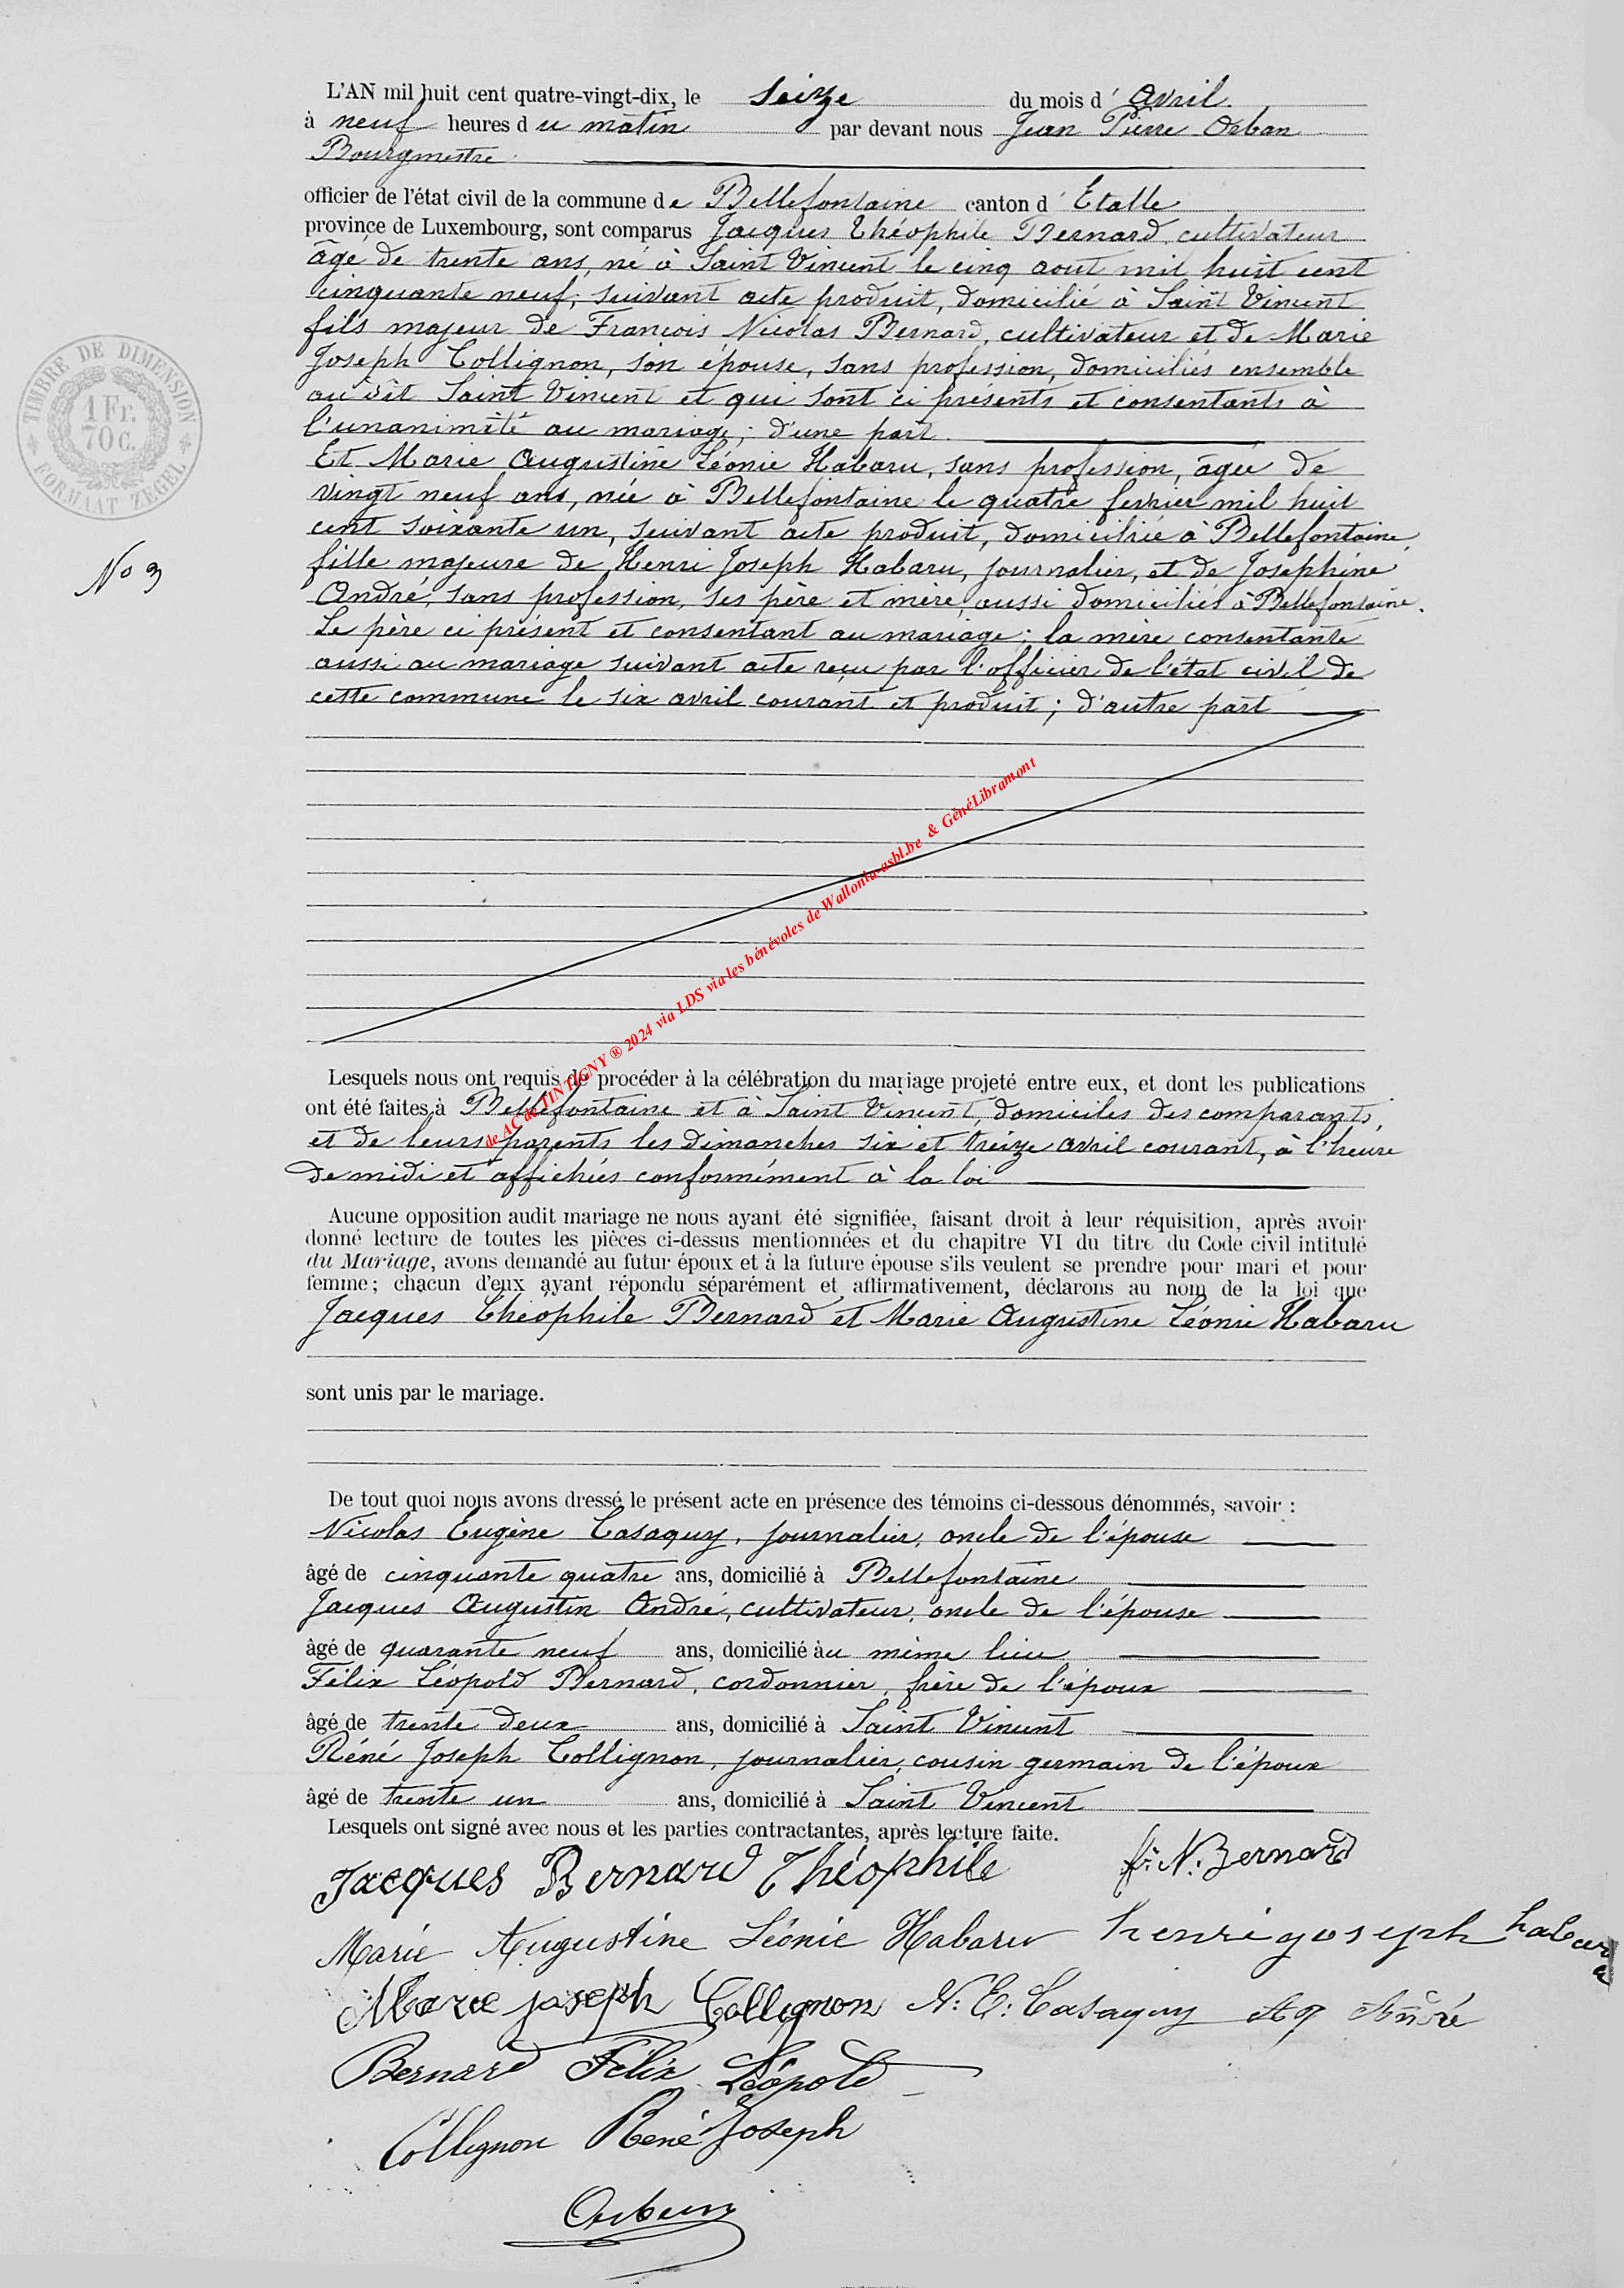 L'AN mil huit cent quatre-vingt-dix, le seize du mois d' avril
à neuf heures du matin par devant nous Jean Pierre Orban
Bourgmestre
officier de l'état civil de la commune de Bellefontaine canton d' Etalle
province de Luxembourg, sont comparus Jacques Théophile Bernard, cultivateur
âgé de trente ans, né à Saint Vincent le cinq aout mil huit cent
cinquante neuf, suivant acte produit, domicilié à Saint Vincent
fils majeur de François Nicolas Bernard, cultivateur et de Marie
Joseph Collignon, son épouse, sans profession, domiciliés ensemble
au dit Saint Vincent et qui sont ci présents et consentants à
l'unanimité au mariage; d'une part.
Et Marie Augustine Léonie Habaru, sans profession, âgée de
vingt neuf ans, née à Bellefontaine le quatre fevrier mil huit
cent soixante un, suivant acte produit, domiciliée à Bellefontaine,
fille majeure de Henri Joseph Habaru, journalier, et de Joséphine
André, sans profession, ses père et mère, aussi domiciliés à Bellefontaine.
Le père ci présent et consentant au mariage; la mère consentante
aussi au mariage suivant acte reçu par l'officier de l'état civil de
cette commune le six avril courant et produit; d'autre part
TIMBRE DE DIMENSION
1 Fr.
70 C.
FORMAAT ZEGEL
No 3
de AC de TINTIGNY ® 2024 via LDS via les bénévoles de Wallonia-asbl.be & GénéLibramont
Lesquels nous ont requis de procéder à la célébration du mariage projeté entre eux, et dont les publications
ont été faites à Bellefontaine et à Saint Vincent, domiciles des comparants,
et de leurs parents les dimanches six et treize avril courant, à l'heure
de midi et affichées conformément à la loi
Aucune opposition audit mariage ne nous ayant été signifiée, faisant droit à leur réquisition, après avoir
donné lecture de toutes les pièces ci-dessus mentionnées et du chapitre VI du titre du Code civil intitulé
du Mariage, avons demandé au futur époux et à la future épouse s'ils veulent se prendre pour mari et pour
femme; chacun d'eux ayant répondu séparément et affirmativement, déclarons au nom de la loi que
Jacques Théophile Bernard et Marie Augustine Léonie Habaru
sont unis par le mariage.
De tout quoi nous avons dressé le présent acte en présence des témoins ci-dessous dénommés, savoir :
Nicolas Eugène Casaquy, journalier, oncle de l'épouse
âgé de cinquante quatre ans, domicilié à Bellefontaine
Jacques Augustin André, cultivateur, oncle de l'épouse
âgé de quarante neuf ans, domicilié au même lieu
Félix Léopold Bernard, cordonnier, frère de l'époux
âgé de trente deux ans, domicilié à Saint Vincent
Réné Joseph Collignon, journalier, cousin germain de l'époux
âgé de trente un ans, domicilié à Saint Vincent
Lesquels ont signé avec nous et les parties contractantes, après lecture faite.
Jacques Bernard Théophile f: N. Bernard
Marie Augustine Léonie Habaru henri goseph habaru
Marie joseph Collignon N: E: Casaquy André
Bernard Félix Léopold
Collignon René Joseph
Orban